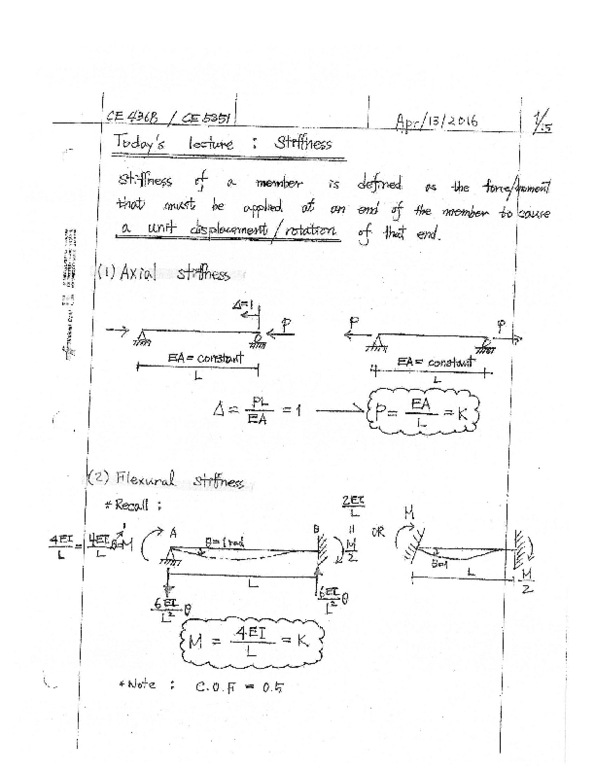 CE 436B / CE 5351
Apr/13/2016
1/5
Today's lecture : Stiffness
Stiffness of a member is defined as the force/moment
that must be applied at an end of the member to cause
a unit displacement/rotation of that end.
(1) Axial stiffness
Δ=1
P
P
P
EA = constant
L
EA = constant
L
Δ = PL/EA = 1 → P = EA/L = K
(2) Flexural stiffness
*Recall :
2EI/L
=
M/2
4EI/L = 4EI/L θ = M
A
θ=1 rad
B
OR
M
θ=1
L
M/2
L
6EI/L² θ
6EI/L² θ
M = 4EI/L = K
*Note : C.O.F = 0.5